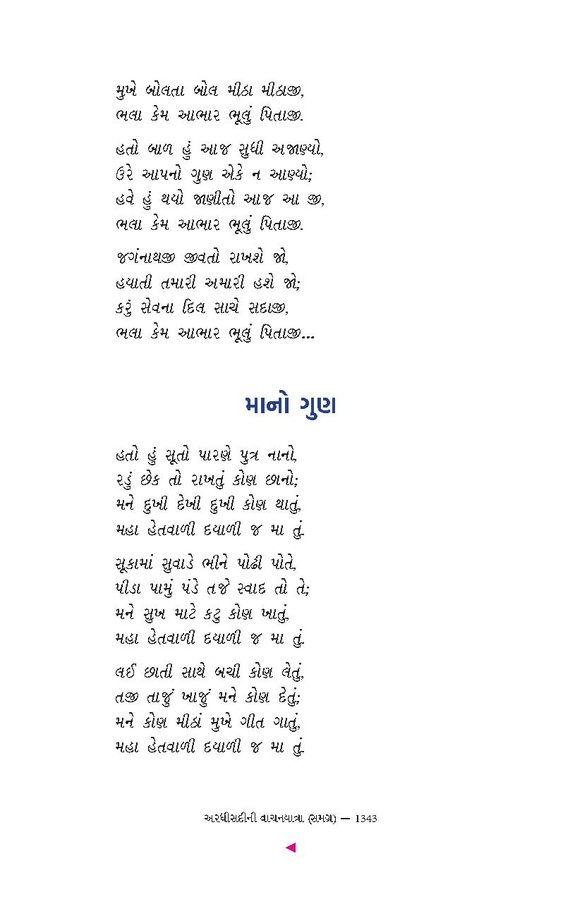 મુખે બોલતા બોલ મીઠા મીઠાજી,
ભલા કેમ આભાર ભૂલું પિતાજી.
હતો બાળ હું આજ સુધી અજાણ્યો,
ઉરે આપનો ગુણ એકે ન આણ્યો;
હવે હું થયો જાણીતો આજ આ જી,
ભલા કેમ આભાર ભૂલું પિતાજી.
જગંનાથજી જીવતો રાખશે જો,
હયાતી તમારી અમારી હશે જો;
કરું સેવના દિલ સાચે સદાજી,
ભલા કેમ આભાર ભૂલું પિતાજી...
માનો ગુણ
હતો હું સૂતો પારણે પુત્ર નાનો,
રડું છેક તો રાખતું કોણ છાનો;
મને દુખી દેખી દુખી કોણ થાતું,
મહા હેતવાળી દયાળી જ મા તું.
સૂકામાં સુવાડે ભીને પોઢી પોતે,
પીડા પામું પંડે તજે સ્વાદ તો તે;
મને સુખ માટે કટુ કોણ ખાતું,
મહા હેતવાળી દયાળી જ મા તું.
લઈ છાતી સાથે બચી કોણ લેતું,
તજી તાજું ખાજું મને કોણ દેતું;
મને કોણ મીઠાં મુખે ગીત ગાતું,
મહા હેતવાળી દયાળી જ મા તું.
અરધીસદીની વાચનયાત્રા (સમગ્ર) — 1343